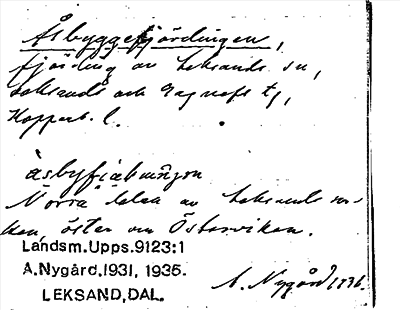 Åsbyggefjärdingen,
fjärding av Leksands sn,
Leksands och Gagnefs tg,
Kopparb. l.
Norra delen av Leksands soc-
ken, öster om Österviken.
Landsm.Upps.9123:1
A.Nygård.1931, 1936.
LEKSAND,DAL.
A. Nygård 1936.